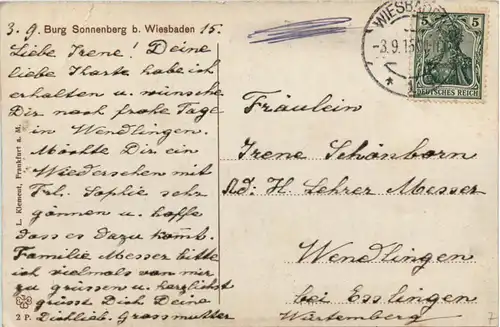 3. 9. Burg Sonnenberg b. Wiesbaden 15.
Liebe Irene! Deine
liebe Karte habe ich
erhalten u. wünsche
Dir noch frohe Tage
in Wendlingen.
Möchte Dir ein
Wiedersehen mit
Frl. Sophie sehr
gönnen u. hoffe
dass es dazu komt.
Familie Messer bitte
ich vielmals von mir
zu grüssen u. herzlichst
grüsst Dich Deine
Dichlieb. Grossmutter
2 P.
L. Klement, Frankfurt a. M.
WIESBADEN
-3.9.15
5 5
DEUTSCHES REICH
Fräulein
Irene Schönborn
Ad: H. Lehrer Messer
Wendlingen
bei Esslingen
Würtemberg
7